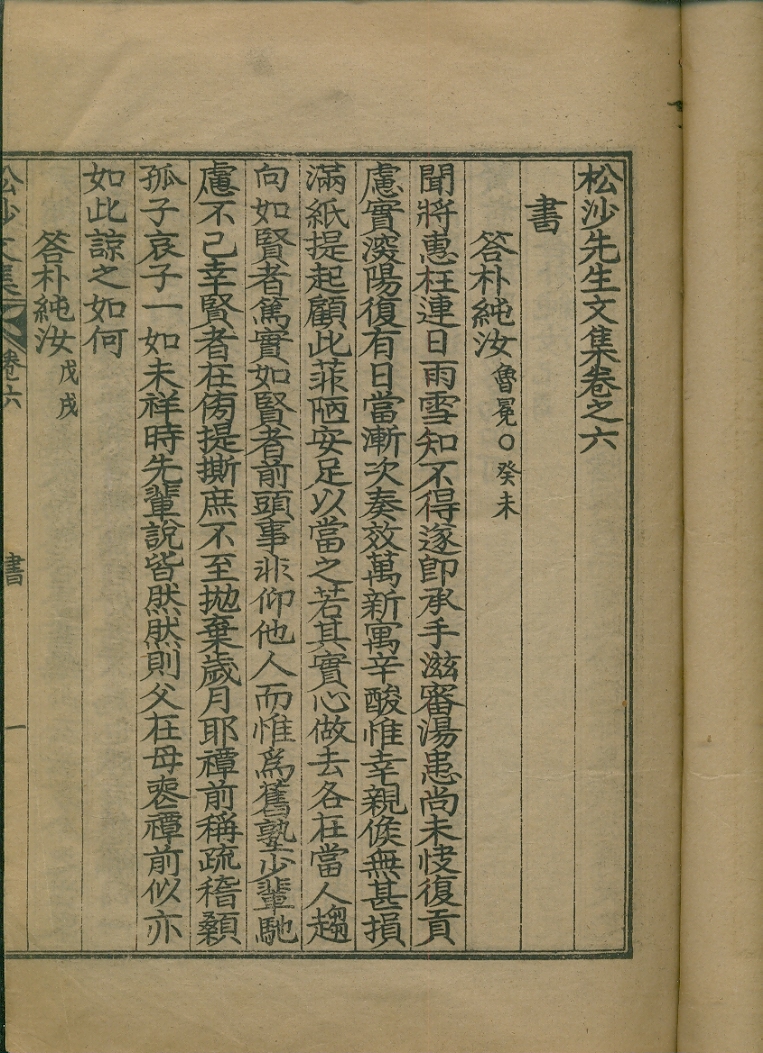 松沙先生文集卷之六
書
答朴純汝魯冕○癸未
聞將惠枉連日雨雪知不得遂卽承手滋審湯患尚未快復貢
慮實深陽復有日當漸次奏效萬新寓辛酸惟幸親候無甚損
滿紙提起顧此菲陋安足以當之若其實心做去各在當人趨
向如賢者篤實如賢者前頭事非仰他人而惟爲舊塾少輩馳
慮不已幸賢者在傍提撕庶不至抛棄歲月耶禫前稱疏稽顙
孤子哀子一如未祥時先輩說皆然然則父在母喪禫前似亦
如此諒之如何
答朴純汝戊戌
松沙文集 卷六 書 一